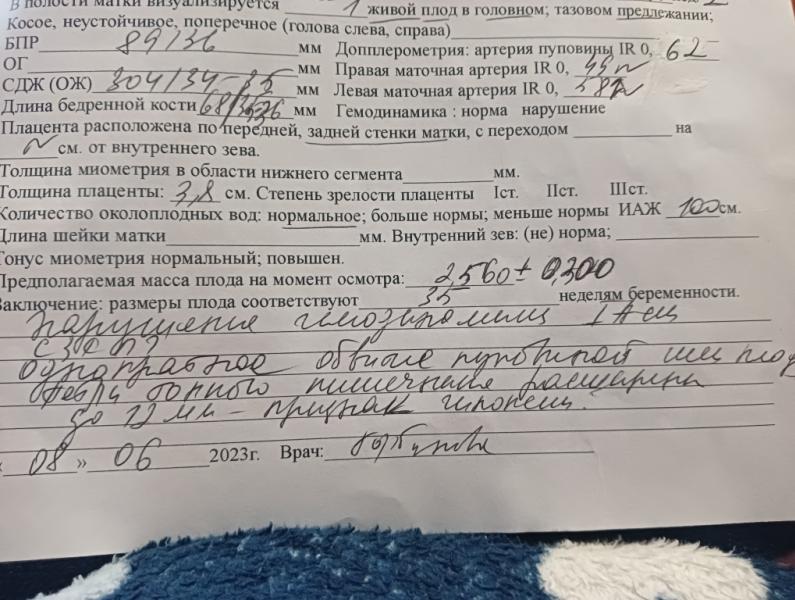 В полости матки визуализируется 1 живой плод в головном; тазовом предлежании;
Косое, неустойчивое, поперечное (голова слева, справа)
БПР 89/36 мм Допплерометрия: артерия пуповины IR 0, 62
ОГ мм Правая маточная артерия IR 0, 44
СДЖ (ОЖ) 304/34-35 мм Левая маточная артерия IR 0, 58
Длина бедренной кости 68/ мм Гемодинамика : норма нарушение
Плацента расположена по передней, задней стенки матки, с переходом на
см. от внутреннего зева.
Толщина миометрия в области нижнего сегмента мм.
Толщина плаценты: 3,8 см. Степень зрелости плаценты Iст. IIст. IIIст.
Количество околоплодных вод: нормальное; больше нормы; меньше нормы ИАЖ 100 см.
Длина шейки матки мм. Внутренний зев: (не) норма;
Тонус миометрия нормальный; повышен.
Предполагаемая масса плода на момент осмотра: 2,560 ± 0,300
Заключение: размеры плода соответствуют 35 неделям беременности.
Нарушение гемодинамики IА ст
СЗРП?
однократное обвитие пуповиной шеи плода
петли кишечника расширены
до 12 мм - признак гипоксии.
« 08 » 06 2023г. Врач: